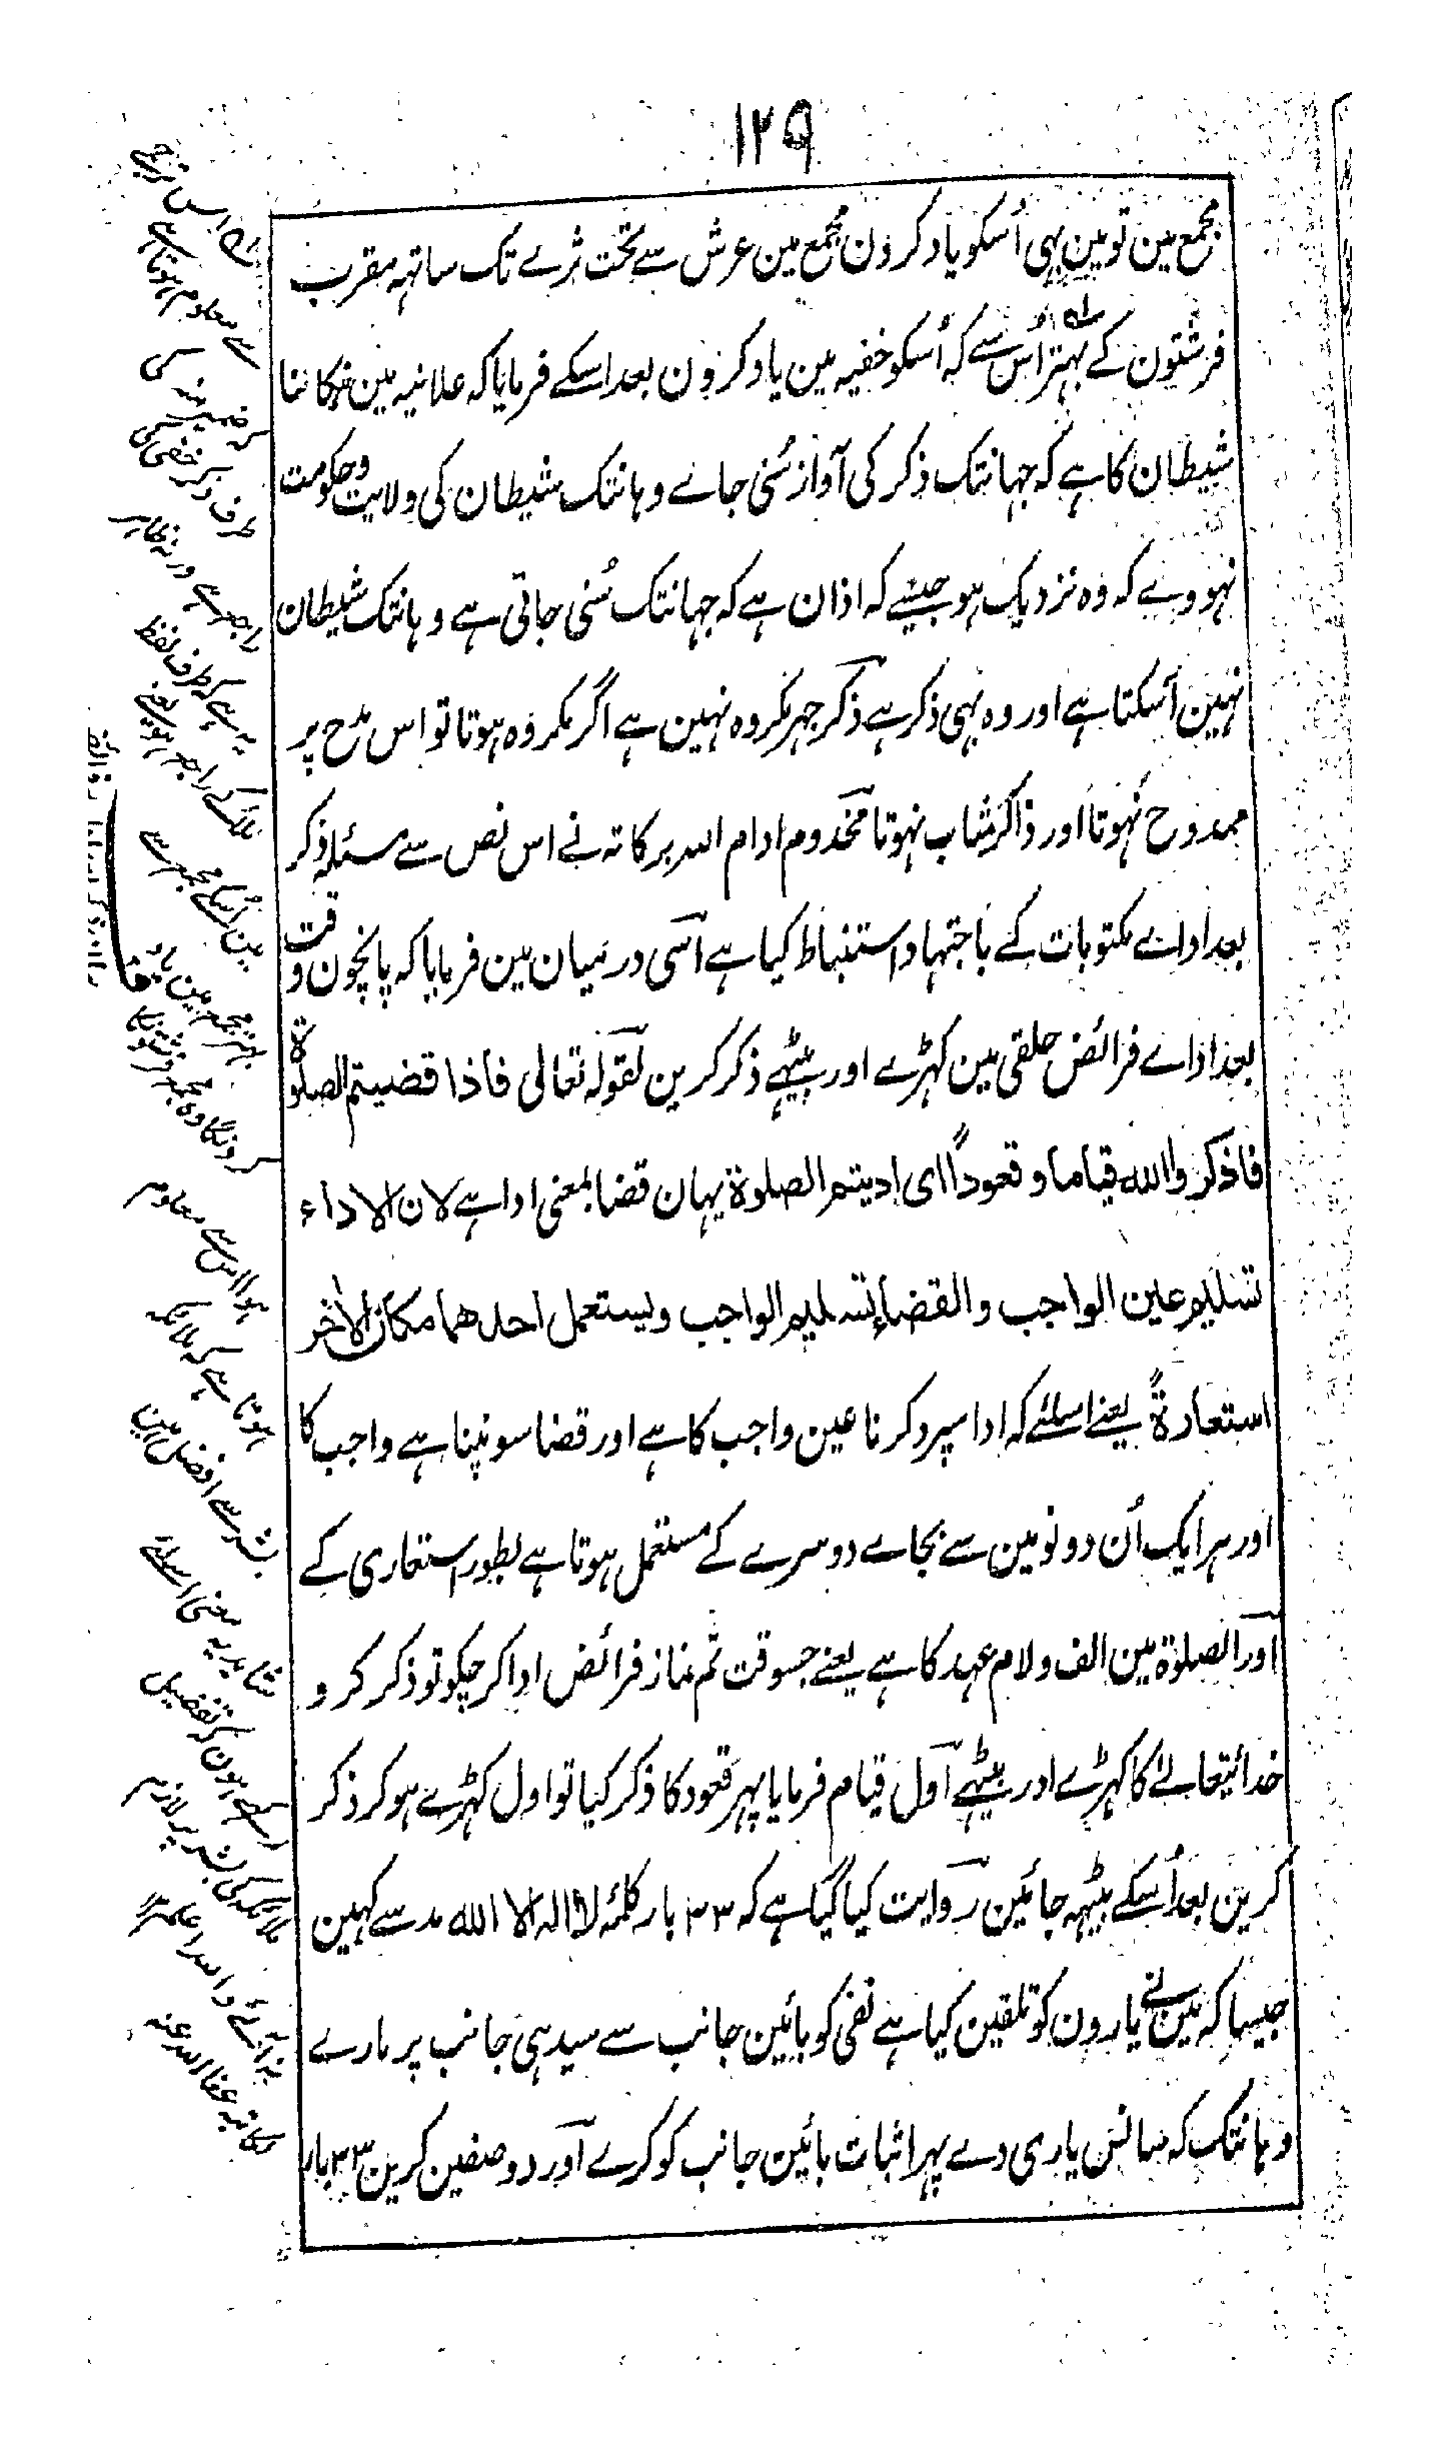 ۱۲۹
مجمع مین تو مین بہی اُسکو یاد کرون مجمع مین عرش سے تخت ثرے تک ساتہہ مقرب
فرشتون کے بہتر اُس سے کہ اُسکو خفیہ مین یاد کرون بعد اسکے فرمایا کہ علانیہ مین
شیطان کا ہے کہ جہانتک ذکر کی آواز سُنی جاے وہانتک شیطان کی ولایت وحکومت
نہووے کہ وہ نزدیک ہو جیسے کہ اذان ہے کہ جہانتک سُنی جاتی ہے وہانتک شیطان
نہین آسکتا ہے اور وہ بہی ذکر ہے ذکر جہر مکروہ نہین ہے اگر مکروہ ہوتا تو اس مدح پر
ممدوح نہوتا اور ذاکر مثاب نہوتا مخدوم ادام اللہ برکاتہ نے اس نص سے مسئلہ ذکر
بعد اداے مکتوبات کے باجتہاد استنباط کیا ہے اسی درمیان مین فرمایا کہ پانچون وقت
بعد اداے فرائض حلقی مین کہڑے اور بیٹھے ذکر کرین لقولہ تعالی فاذا قضیتم الصلوۃ
فاذکروا اللہ قیاما وقعوداً ای ادیتم الصلوۃ یہان قضا بمعنی ادا ہے لان الاداء
تسلیم عین الواجب والقضاء تسلیم الواجب ویستعمل احدھما مکان الآخر
استعارۃً یعنے اسلئے کہ ادا سپرد کرنا عین واجب کا ہے اور قضا سونپنا ہے واجب کا
اور ہر ایک اُن دونو مین سے بجاے دوسرے کے مستعمل ہوتا ہے بطور استعاری کے
اور الصلوۃ مین الف ولام عہد کا ہے یعنے جسوقت تم نماز فرائض ادا کر چکو تو ذکر کرو
خدائیتعالےٰ کا کہڑے اور بیٹھے اول قیام فرمایا پہر قعود کا ذکر کیا تو اول کہڑے ہو کر ذکر
کرین بعد اُسکے بیٹہہ جائین روایت کیا گیا ہے کہ ۳۳ بار کلمۂ لا الہ الا اللہ مد سے کہین
جیسا کہ مین نے یارون کو تلقین کیا ہے نفی کو بائین جانب سے سیدہی جانب پر مارے
وہانتک کہ سانس یاری دے پہر اثبات بائین جانب کو کرے اور دو صفین کرین ۳۳ بار
اس ترجمے
سے معلوم ہوتا ہے
کہ ضمیر منہ کی
طرف ذکر خفی کی
راجع ہے ورنہ ظاہر
یہ ہے کہ طرف لفظ
ملأ کے راجع
بہتر مجمع مین یاد
کرونگا وہ مجمع فرشتونکا
ہوا اس سے معلوم
ہوتا ہے کہ ملائکہ
بشر سے افضل ہین
شاید یہ معنی اسلئے
کہے ہون کہ تفضیل
ملائکہ کی بشر پر لازم
نہ آئے واللہ اعلم
کاتبہ عفا اللہ عنہ